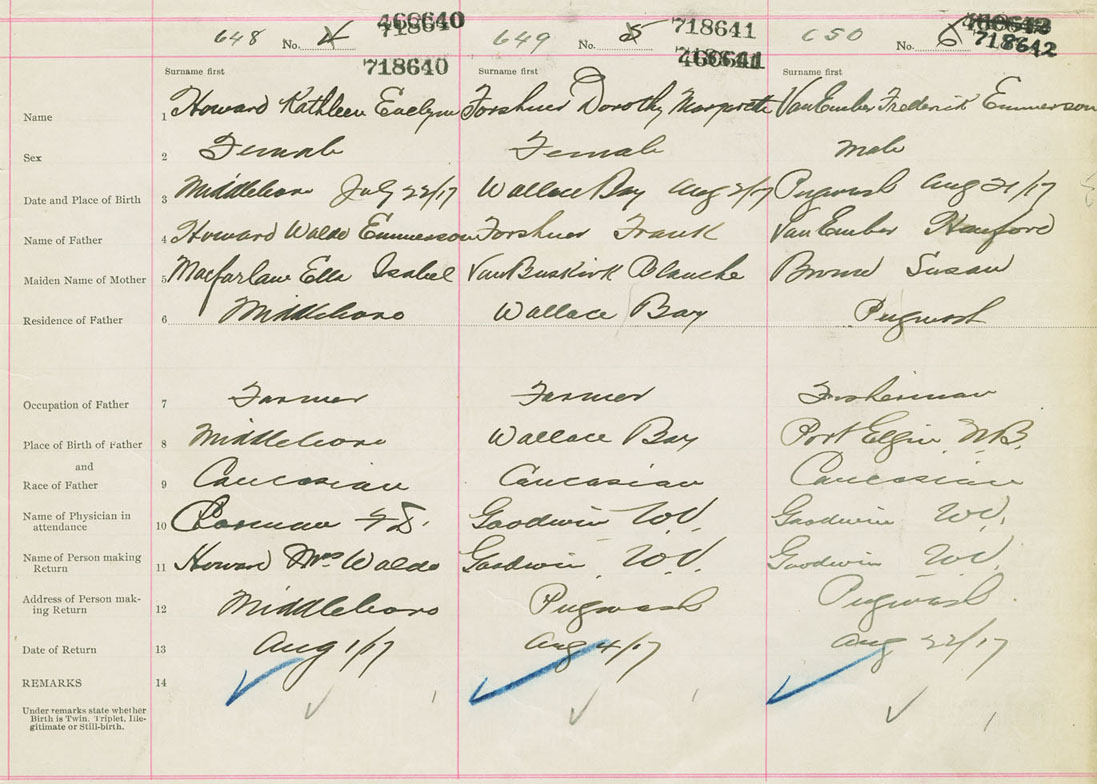 648 No. 4 460640 718640 649 No. 5 718641 650 No. 6 460642 718642
718640 718641 460641
Surname first Surname first Surname first
Name 1 Howard Kathleen Evelyn Forshner Dorothy Margarette VanEmber Frederick Emmerson
Sex 2 Female Female Male
Date and Place of Birth 3 Middleboro July 22/17 Wallace Bay Aug 2/17 Pugwash Aug 21/17
Name of Father 4 Howard Waldo Emmerson Forshner Frank VanEmber Hanford
Maiden Name of Mother 5 Macfarlane Ella Isabel VanBuskirk Blanche Brown Susan
Residence of Father 6 Middleboro Wallace Bay Pugwash
Occupation of Father 7 Farmer Farmer Fisherman
Place of Birth of Father 8 Middleboro Wallace Bay Port Elgin N.B.
and
Race of Father 9 Caucasian Caucasian Caucasian
Name of Physician in
attendance 10 Goodwin W.V. Goodwin W.V.
Name of Person making
Return 11 Howard Mrs Waldo Goodwin W.V. Goodwin W.V.
Address of Person mak-
ing Return 12 Middleboro Pugwash Pugwash
Date of Return 13 Aug 1/17 Aug 4/17 Aug 22/17
REMARKS 14
Under remarks state whether
Birth is Twin. Triplet, Ille-
gitimate or Still-birth.